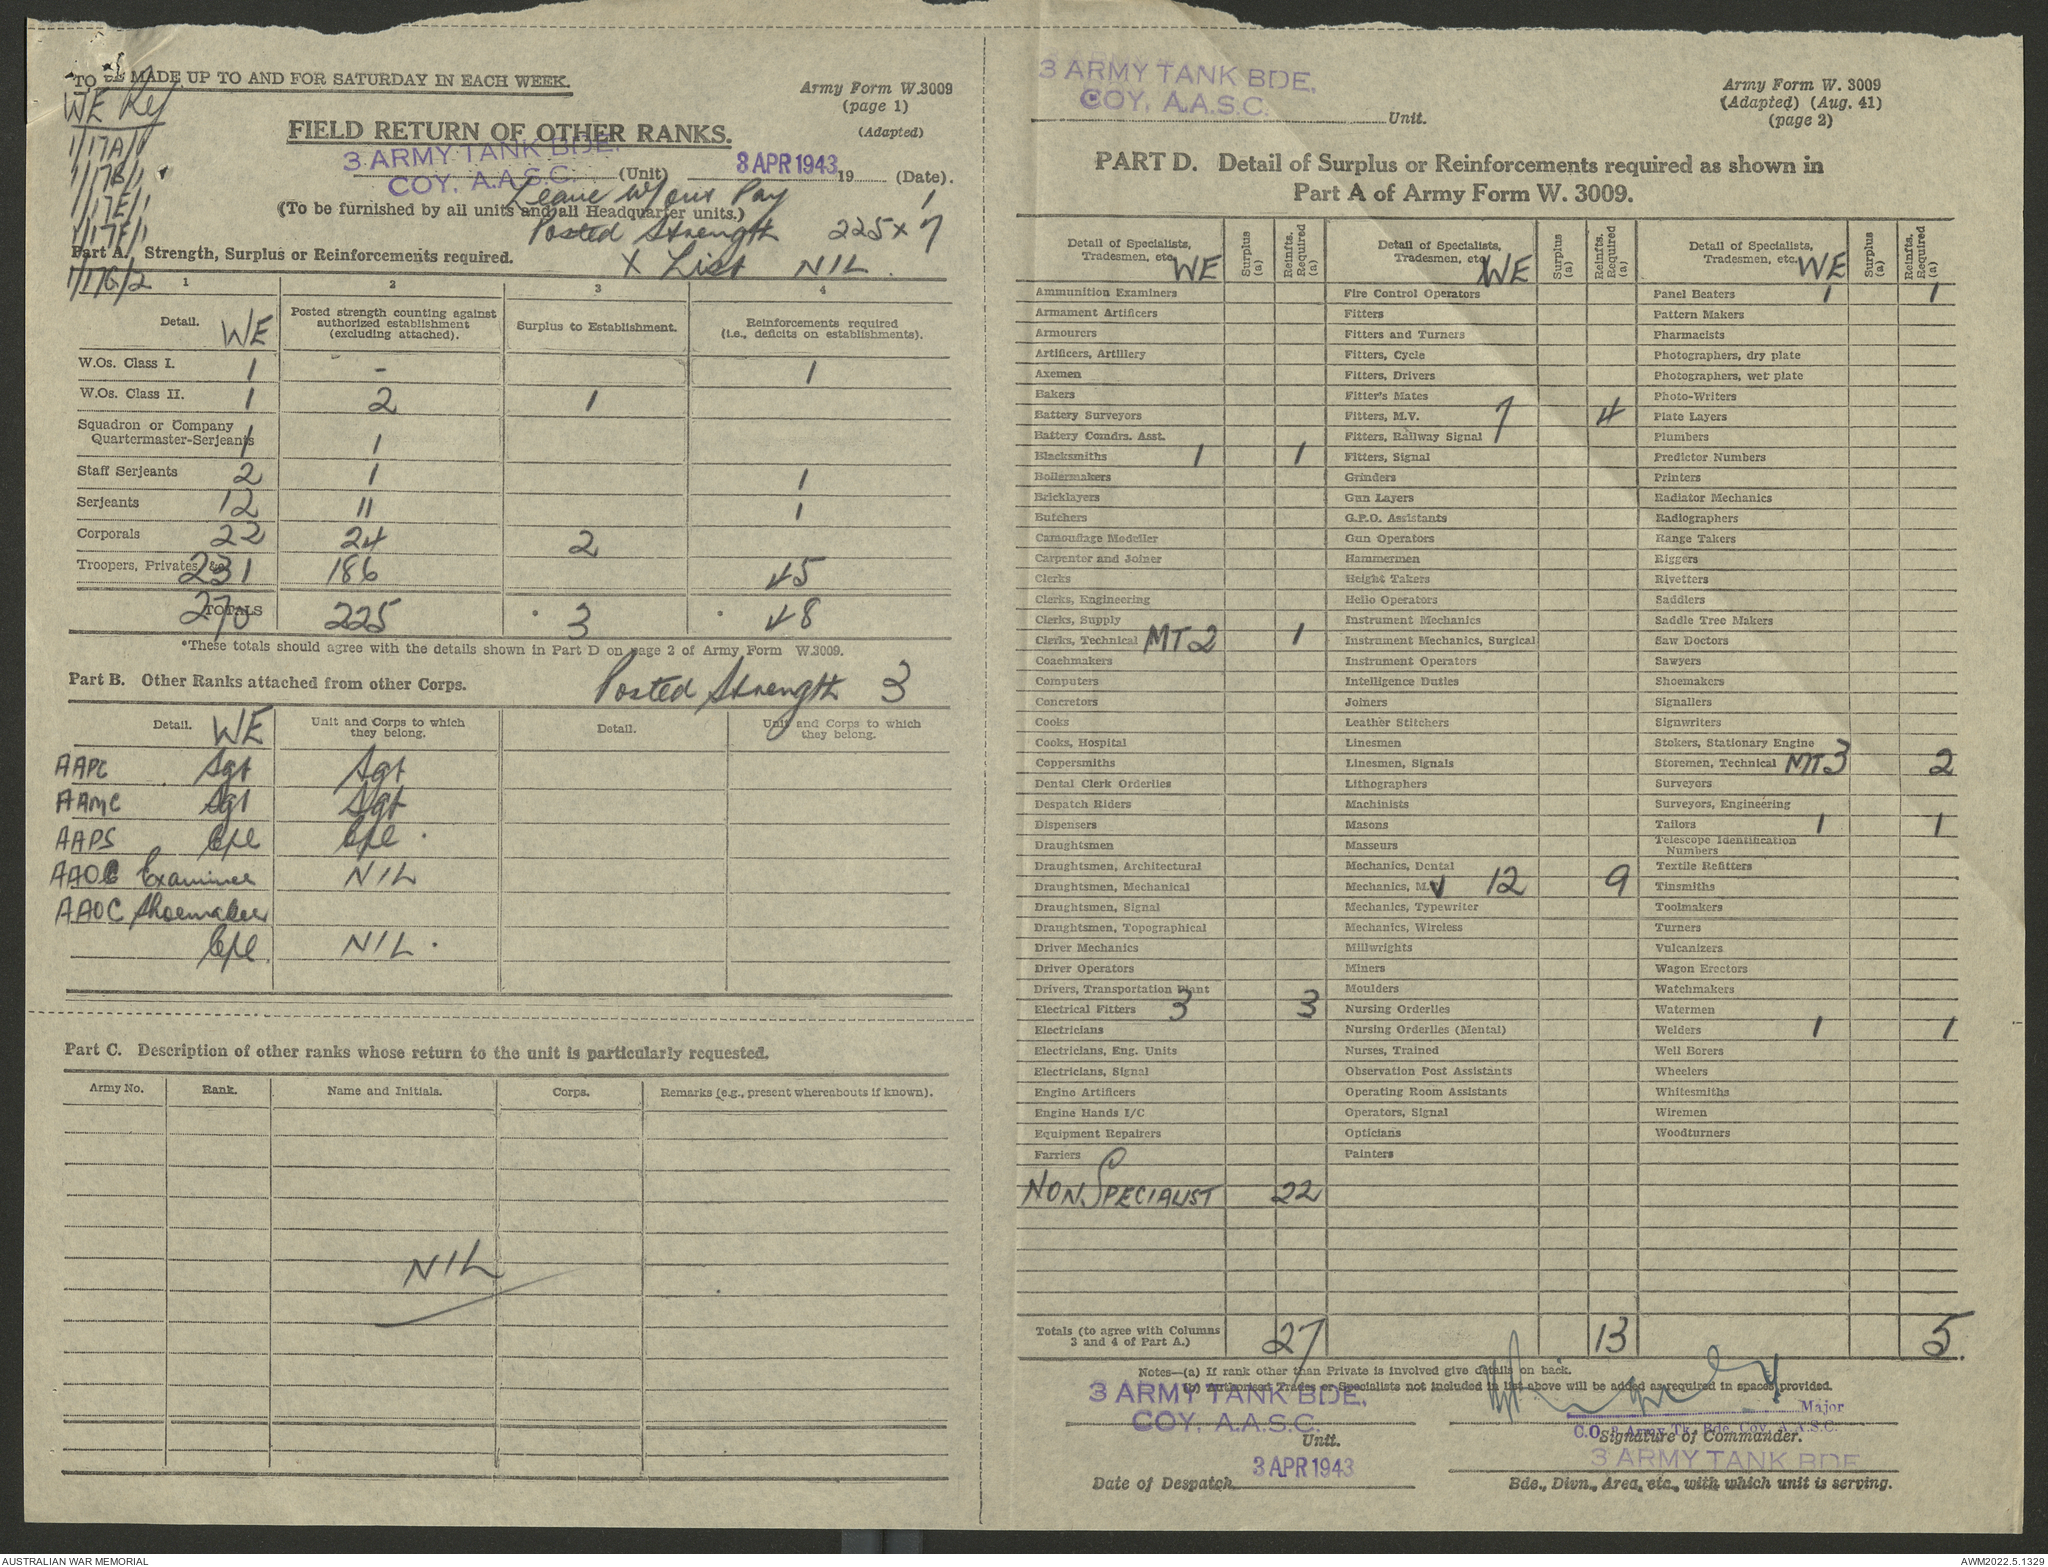 TO BE MADE UP TO AND FOR SATURDAY IN EACH WEEK.
Army Form W.3009
(page 1)
(Adapted)
WE Ref
1/17A/1
1/17B/1
1/17E/1
1/17F/1
1/17G/2
FIELD RETURN OF OTHER RANKS.
3 ARMY TANK BDE.
COY. A.A.S.C. (Unit) 3 APR 1943 19 (Date).
Leave w/out Pay 1
(To be furnished by all units and all Headquarter units.)
Posted Strength 225 x 7
Part A. Strength, Surplus or Reinforcements required.
X List NIL.
1 2 3 4
Detail. WE
Posted strength counting against authorized establishment (excluding attached).
Surplus to Establishment.
Reinforcements required (i.e., deficits on establishments).
W.Os. Class I. 1 - 1
W.Os. Class II. 1 2 1
Squadron or Company
Quartermaster-Serjeants 1 1
Staff Serjeants 2 1 1
Serjeants 12 11 1
Corporals 22 24 2
Troopers, Privates, &c. 231 186 45
TOTALS 270 225 3 48
*These totals should agree with the details shown in Part D on page 2 of Army Form W.3009.
Part B. Other Ranks attached from other Corps. Posted Strength 3
Detail. WE
Unit and Corps to which they belong.
Detail.
Unit and Corps to which they belong.
AAPC Sgt Sgt
AAMC Sgt Sgt
AAPS Cpl Cpl
AAOC Examiner NIL
AAOC Shoemaker
Cpl. NIL.
Part C. Description of other ranks whose return to the unit is particularly requested.
Army No. Rank. Name and Initials. Corps. Remarks (e.g., present whereabouts if known).
NIL
3 ARMY TANK BDE.
COY. A.A.S.C.
Unit.
Army Form W. 3009
(Adapted) (Aug. 41)
(page 2)
PART D. Detail of Surplus or Reinforcements required as shown in
Part A of Army Form W. 3009.
Detail of Specialists, Tradesmen, etc. WE
Surplus (a)
Reinfts. Required (a)
Ammunition Examiners
Armament Artificers
Armourers
Artificers, Artillery
Axemen
Bakers
Battery Surveyors
Battery Comdrs. Asst.
Blacksmiths 1 1
Boilermakers
Bricklayers
Butchers
Camouflage Modeller
Carpenter and Joiner
Clerks
Clerks, Engineering
Clerks, Supply
Clerks, Technical MT 2 1
Coachmakers
Computers
Concretors
Cooks
Cooks, Hospital
Coppersmiths
Dental Clerk Orderlies
Despatch Riders
Dispensers
Draughtsmen
Draughtsmen, Architectural
Draughtsmen, Mechanical
Draughtsmen, Signal
Draughtsmen, Topographical
Driver Mechanics
Driver Operators
Drivers, Transportation Plant
Electrical Fitters 3 3
Electricians
Electricians, Eng. Units
Electricians, Signal
Engine Artificers
Engine Hands I/C
Equipment Repairers
Farriers
NON SPECIALIST 22
Detail of Specialists, Tradesmen, etc. WE
Surplus (a)
Reinfts. Required (a)
Fire Control Operators
Fitters
Fitters and Turners
Fitters, Cycle
Fitters, Drivers
Fitter's Mates
Fitters, M.V. 7 4
Fitters, Railway Signal
Fitters, Signal
Grinders
Gun Layers
G.P.O. Assistants
Gun Operators
Hammermen
Height Takers
Hello Operators
Instrument Mechanics
Instrument Mechanics, Surgical
Instrument Operators
Intelligence Duties
Joiners
Leather Stitchers
Linesmen
Linesmen, Signals
Lithographers
Machinists
Masons
Masseurs
Mechanics, Dental
Mechanics, M.V 12 9
Mechanics, Typewriter
Mechanics, Wireless
Millwrights
Miners
Moulders
Nursing Orderlies
Nursing Orderlies (Mental)
Nurses, Trained
Observation Post Assistants
Operating Room Assistants
Operators, Signal
Opticians
Painters
Detail of Specialists, Tradesmen, etc. WE
Surplus (a)
Reinfts. Required (a)
Panel Beaters 1 1
Pattern Makers
Pharmacists
Photographers, dry plate
Photographers, wet plate
Photo-Writers
Plate Layers
Plumbers
Predictor Numbers
Printers
Radiator Mechanics
Radiographers
Range Takers
Riggers
Rivetters
Saddlers
Saddle Tree Makers
Saw Doctors
Sawyers
Shoemakers
Signallers
Signwriters
Stokers, Stationary Engine
Storemen, Technical MT 3 2
Surveyors
Surveyors, Engineering
Tailors 1 1
Telescope Identification Numbers
Textile Refitters
Tinsmiths
Toolmakers
Turners
Vulcanizers
Wagon Erectors
Watchmakers
Watermen
Welders 1 1
Well Borers
Wheelers
Whitesmiths
Wiremen
Woodturners
Totals (to agree with Columns 3 and 4 of Part A.) 27 13 5.
Notes—(a) If rank other than Private is involved give details on back.
(b) Authorised Trades or Specialists not included in list above will be added as required in spaces provided.
3 ARMY TANK BDE.
COY. A.A.S.C.
Unit.
3 APR 1943
Date of Despatch
Major
C.O. 3 Army Tk. Bde. Coy. A.A.S.C.
Signature of Commander.
3 ARMY TANK BDE
Bde., Divn., Area, etc., with which unit is serving.
AUSTRALIAN WAR MEMORIAL
AWM2022.5.1329